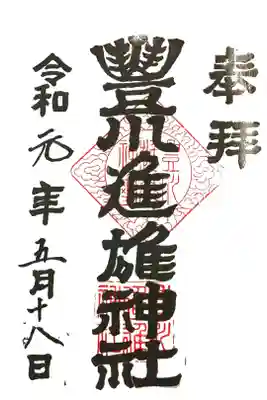 奉拝
豐川進雄神社
令和元年五月十八日